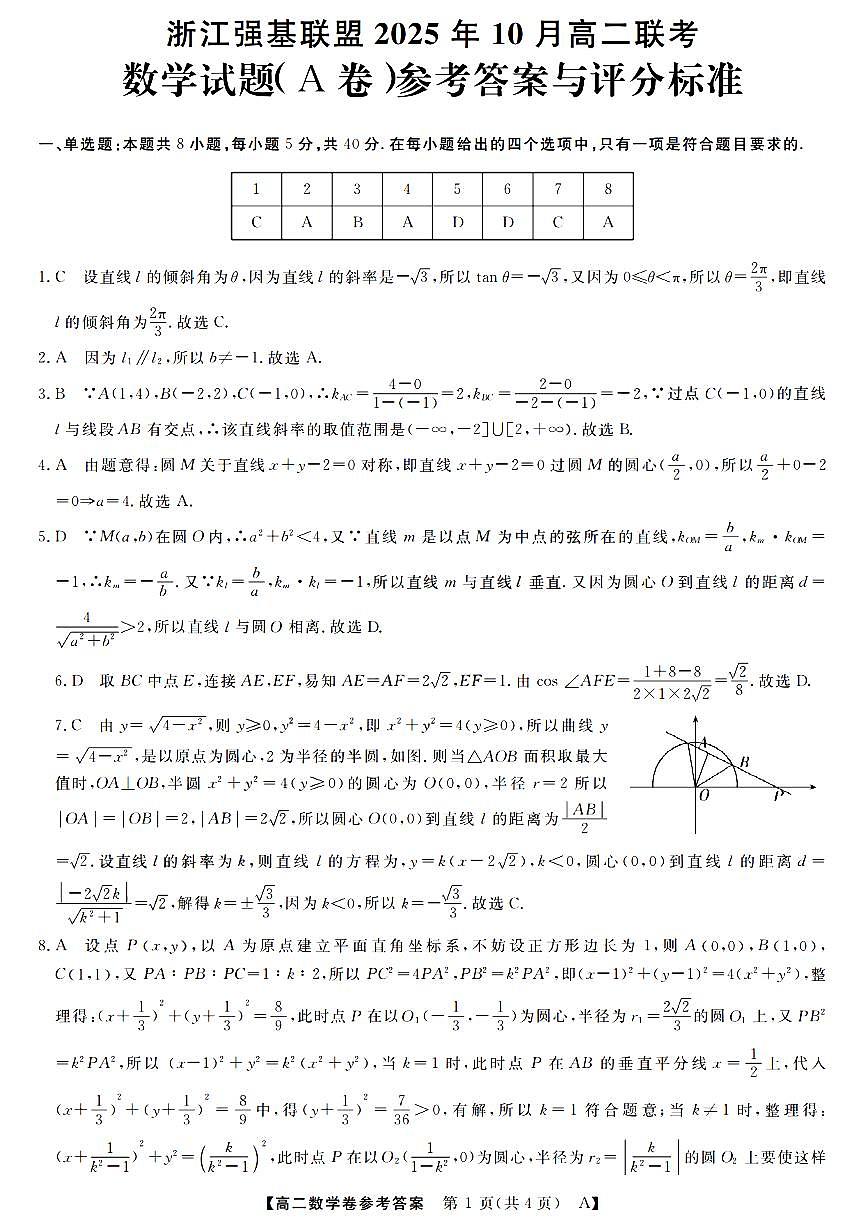 浙江强基联盟 2025 年 10 月高二联考
数学试题( A 卷 )参考答案与评分标准
一、单选题:本题共 8 小题,每小题 5 分,共 40 分.在每小题给出的四个选项中,只有一项是符合题目要求的.
1 2 3 4 5 6 7 8
C A B A D D C A
1. C 设直线 l 的倾斜角为θ,因为直线 l 的斜率是-√3,所以 tan θ=-√3,又因为 0≤θ<π,所以 θ=2π/3,即直线
l 的倾斜角为2π/3.故选 C.
2. A 因为 l₁∥l₂,所以 b≠-1.故选 A.
3. B ∵A(1,4),B(-2,2),C(-1,0),∴k_AC=(4-0)/(1-(-1))=2,k_BC=(2-0)/(-2-(-1))=-2,∵过点 C(-1,0)的直线
l 与线段 AB 有交点,∴该直线斜率的取值范围是(-∞,-2]∪[2,+∞).故选 B.
4. A 由题意得:圆 M 关于直线 x+y-2=0 对称,即直线 x+y-2=0 过圆 M 的圆心(a/2,0),所以 a/2+0-2
=0⇒a=4.故选 A.
5. D ∵M(a,b)在圆 O 内,∴a²+b²<4,又∵直线 m 是以点 M 为中点的弦所在的直线,k_OM=b/a,k_m·k_OM=
-1,∴k_m=-a/b.又∵k_l=b/a,k_m·k_l=-1,所以直线 m 与直线 l 垂直.又因为圆心 O 到直线 l 的距离 d=
4/√(a²+b²)>2,所以直线 l 与圆 O 相离.故选 D.
6. D 取 BC 中点 E,连接 AE,EF,易知 AE=AF=2√2,EF=1.由 cos ∠AFE=(1+8-8)/(2×1×2√2)=√2/8.故选 D.
7. C 由 y=√(4-x²),则 y≥0,y²=4-x²,即 x²+y²=4(y≥0),所以曲线 y
=√(4-x²),是以原点为圆心,2 为半径的半圆,如图.则当△AOB 面积取最大
值时,OA⊥OB,半圆 x²+y²=4(y≥0)的圆心为 O(0,0),半径 r=2 所以
|OA|=|OB|=2,|AB|=2√2,所以圆心 O(0,0)到直线 l 的距离为|AB|/2
A
B
O
P
=√2.设直线 l 的斜率为 k,则直线 l 的方程为,y=k(x-2√2),k<0,圆心(0,0)到直线 l 的距离 d=
|-2√2k|/√(k²+1)=√2,解得 k=±√3/3,因为 k<0,所以 k=-√3/3.故选 C.
8. A 设点 P(x,y),以 A 为原点建立平面直角坐标系,不妨设正方形边长为 1,则 A(0,0),B(1,0),
C(1,1),又 PA∶PB∶PC=1∶k∶2,所以 PC²=4PA²,PB²=k²PA²,即(x-1)²+(y-1)²=4(x²+y²),整
理得:(x+1/3)²+(y+1/3)²=8/9,此时点 P 在以O₁(-1/3,-1/3)为圆心,半径为 r₁=2√2/3的圆 O₁ 上,又 PB²
=k²PA²,所以 (x-1)²+y²=k²(x²+y²),当 k=1 时,此时点 P 在 AB 的垂直平分线 x=1/2上,代入
(x+1/3)²+(y+1/3)²=8/9中,得(y+1/3)²=7/36>0,有解,所以 k=1 符合题意;当 k≠1 时,整理得:
(x+1/(k²-1))²+y²=(k/(k²-1))²,此时点 P 在以O₂(1/(1-k²),0)为圆心,半径为 r₂=|k/(k²-1)|的圆 O₂ 上要使这样
【高二数学卷参考答案 第 1 页(共 4 页) A】